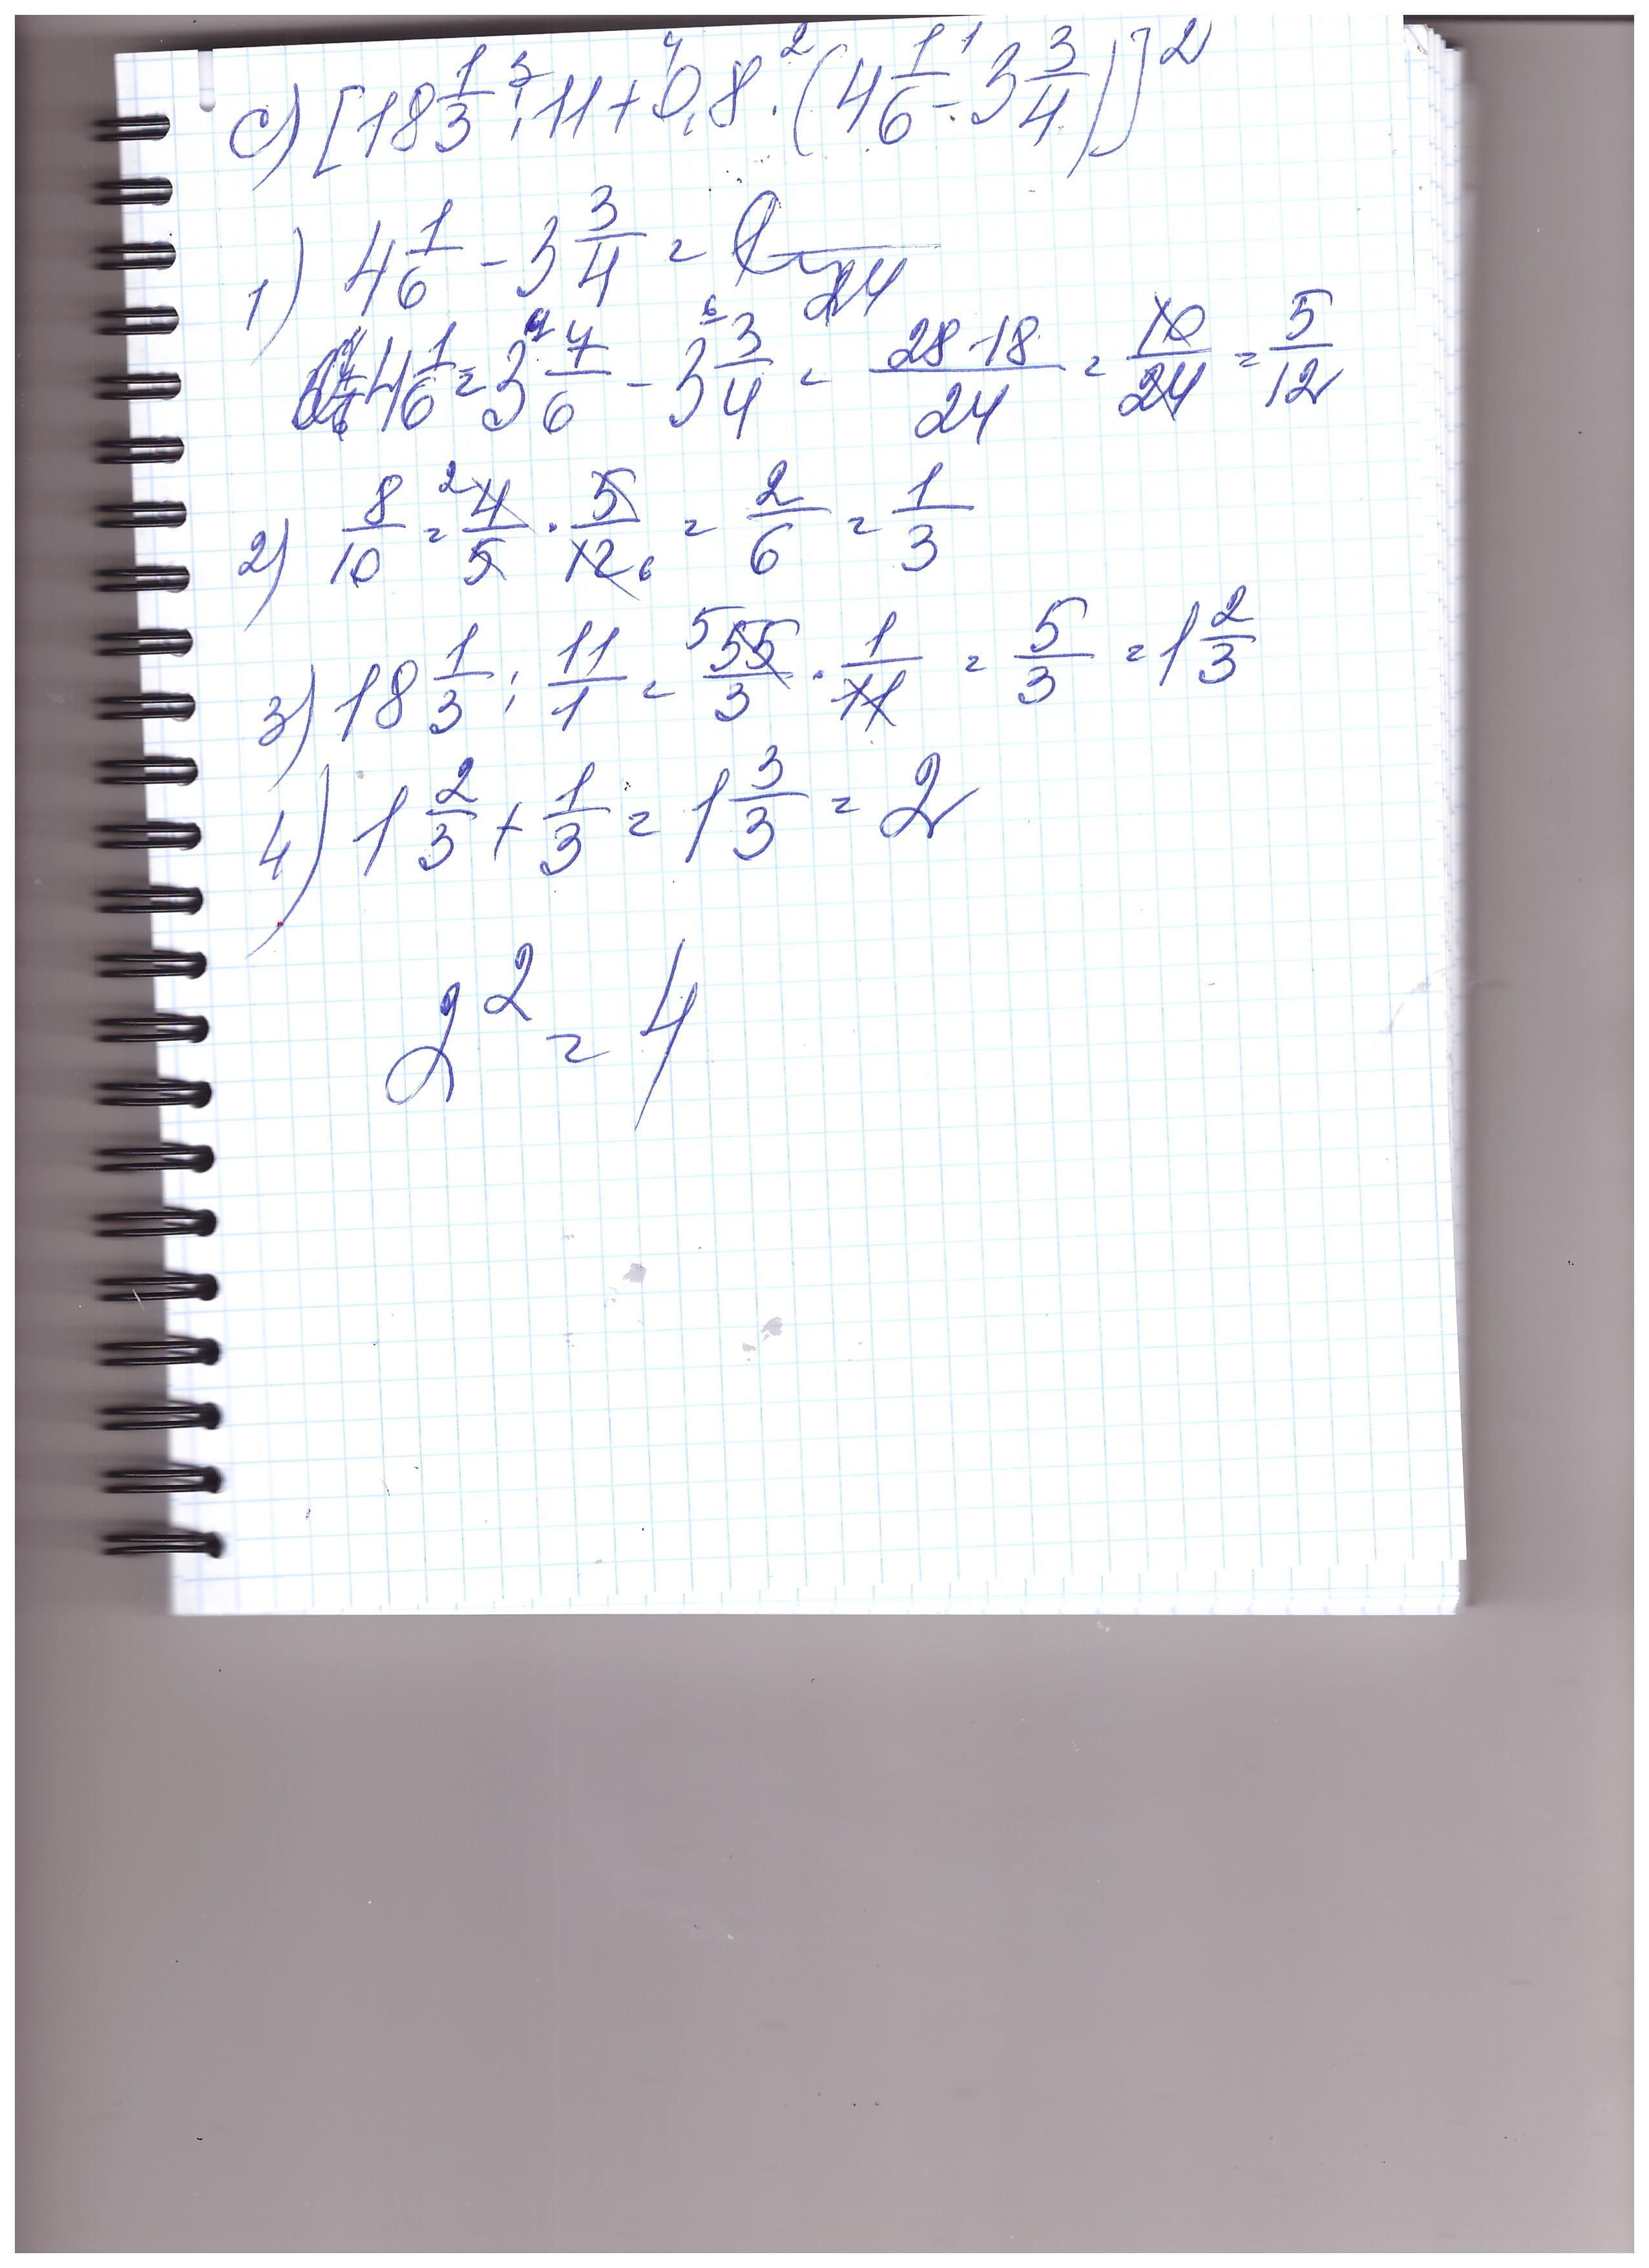 c) [18 1/3 : 11 + 0,8 · (4 1/6 - 3 3/4)]²
1) 4 1/6 - 3 3/4 =
4 1/6 = 3 7/6 - 3 3/4 = 28-18/24 = 10/24 = 5/12
2) 8/10 = 4/5 · 5/12 = 2/6 = 1/3
3) 18 1/3 : 11/1 = 55/3 · 1/11 = 5/3 = 1 2/3
4) 1 2/3 + 1/3 = 1 3/3 = 2
2² = 4